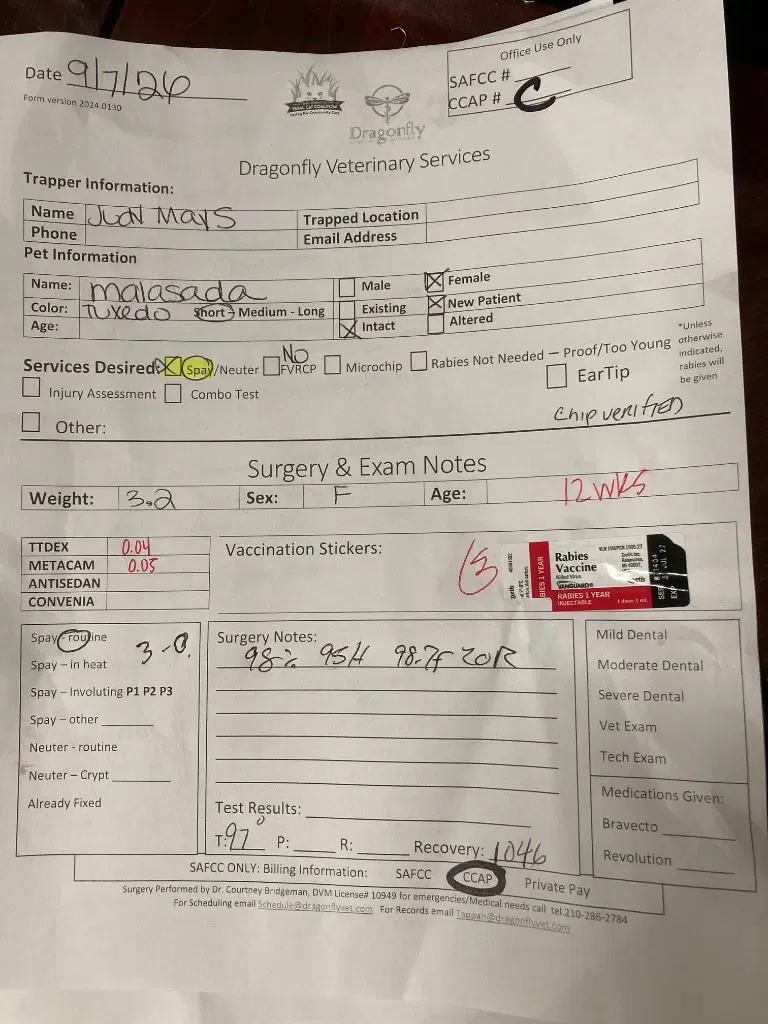 Office Use Only
Date 9/7/26
SAFCC #
CCAP # C
Form version 2024.0130
FERAL CAT COALITION
Dragonfly
Dragonfly Veterinary Services
Trapper Information:
Name Judy Mays Trapped Location
Phone Email Address
Pet Information
Name: malasada Male Female
Color: Tuxedo Short - Medium - Long Existing New Patient
Age: Intact Altered
*Unless otherwise indicated, rabies will be given
Services Desired Spay/Neuter NO FVRCP Microchip Rabies Not Needed – Proof/Too Young
Injury Assessment Combo Test EarTip
Chip verified
Other:
Surgery & Exam Notes
Weight: 3.2 Sex: F Age: 12 wks
TTDEX 0.04
METACAM 0.05
ANTISEDAN
CONVENIA
Vaccination Stickers:
Rabies Vaccine
Killed Virus
VANGUARD®
RABIES 1 YEAR
INJECTABLE
1 dose: 1 mL
Zoetis Inc.
Kalamazoo,
zoetis
RABIES 1 YEAR
SER
EXP JUL 27
Spay – routine 3-0
Spay – in heat
Spay – Involuting P1 P2 P3
Spay – other
Neuter - routine
Neuter – Crypt
Already Fixed
Surgery Notes:
98% 95H 98.7F 20R
Test Results:
T: 97° P: R: Recovery: 1046
Mild Dental
Moderate Dental
Severe Dental
Vet Exam
Tech Exam
Medications Given:
Bravecto
Revolution
SAFCC ONLY: Billing Information: SAFCC CCAP Private Pay
Surgery Performed by Dr. Courtney Bridgeman, DVM License# 10949 for emergencies/Medical needs call tel.210-286-2784
For Scheduling email Schedule@dragonflyvet.com For Records email Tappan@dragonflyvet.com